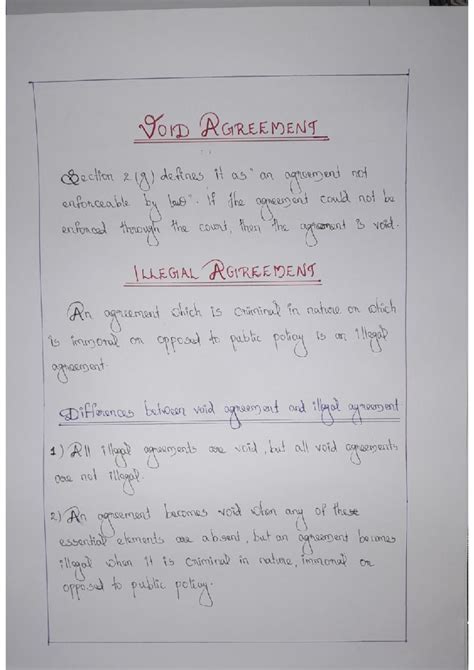 VOID AGREEMENT
Section 2(g) defines it as "an agreement not
enforceable by law". If the agreement could not be
enforced through the court, then the agreement is void.
ILLEGAL AGREEMENT
An agreement which is criminal in nature or which
is immoral or opposed to public policy is an illegal
agreement.
Differences between void agreement and illegal agreement
1) All illegal agreements are void, but all void agreements
are not illegal.
2) An agreement becomes void when any of these
essential elements are absent, but an agreement becomes
illegal when it is criminal in nature, immoral or
opposed to public policy.